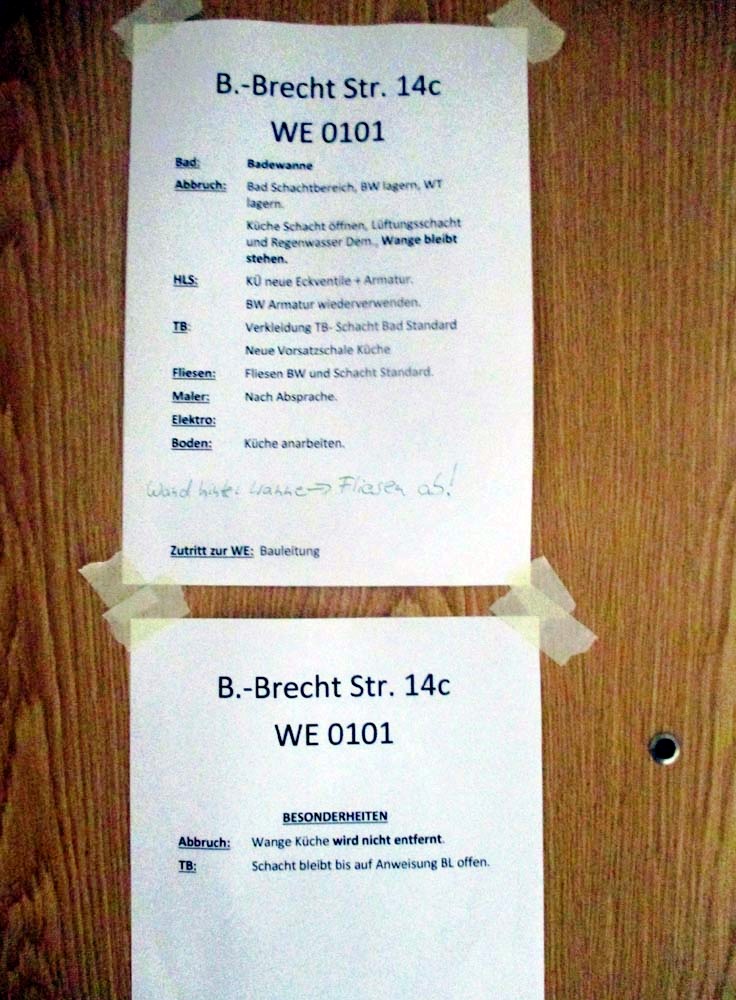 B.-Brecht Str. 14c
WE 0101
Bad: Badewanne
Abbruch: Bad Schachtbereich, BW lagern, WT
lagern.
Küche Schacht öffnen, Lüftungsschacht
und Regenwasser Dem., Wange bleibt
stehen.
HLS: KÜ neue Eckventile + Armatur.
BW Armatur wiederverwenden.
TB: Verkleidung TB- Schacht Bad Standard
Neue Vorsatzschale Küche
Fliesen: Fliesen BW und Schacht Standard.
Maler: Nach Absprache.
Elektro:
Boden: Küche anarbeiten.
Wand hinter Wanne -> Fliesen ab!
Zutritt zur WE: Bauleitung
B.-Brecht Str. 14c
WE 0101
BESONDERHEITEN
Abbruch: Wange Küche wird nicht entfernt.
TB: Schacht bleibt bis auf Anweisung BL offen.